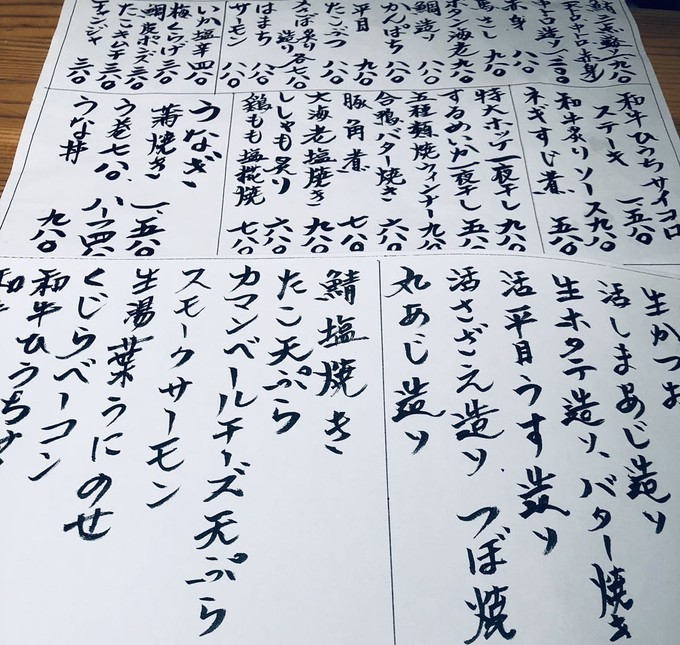 天然中トロ赤身
中トロ造り 一、二八〇
赤身 八八〇
馬さし 九八〇
ボタン海老 九八〇
鯛造り 八八〇
かんぱち 八八〇
平目 九八〇
たこぶつ 八八〇
〆さば炙り
造り 各七八〇
はまち 八八〇
サーモン 八八〇
いか塩辛 四八〇
梅くらげ 三八〇
鯛皮ポンズ 三八〇
たこキムチ 三八〇
チャンジャ 三八〇
和牛ひうちサイコロ
ステーキ 一、五八〇
和牛炙りソース 九八〇
ネギすじ煮 五八〇
特大ホッケ一夜干し 九八〇
するめいか一夜干し 五八〇
五種類焼ウィンナー 九八〇
合鴨バター焼き 六八〇
豚角煮 七八〇
大海老塩焼き 九八〇
ししゃも炙り 六八〇
鶏もも塩糀焼 七八〇
うなぎ
蒲焼き 一、五八〇
う巻 七八〇 ハーフ四八〇
うな丼 九八〇
生かつお
活しまあじ造り
生ホタテ造り、バター焼き
活平目うす造り
活さざえ造り、つぼ焼
丸あじ造り
鯖塩焼き
たこ天ぷら
カマンベールチーズ天ぷら
スモークサーモン
生湯葉うにのせ
くじらベーコン
和牛ひうちサ
和牛